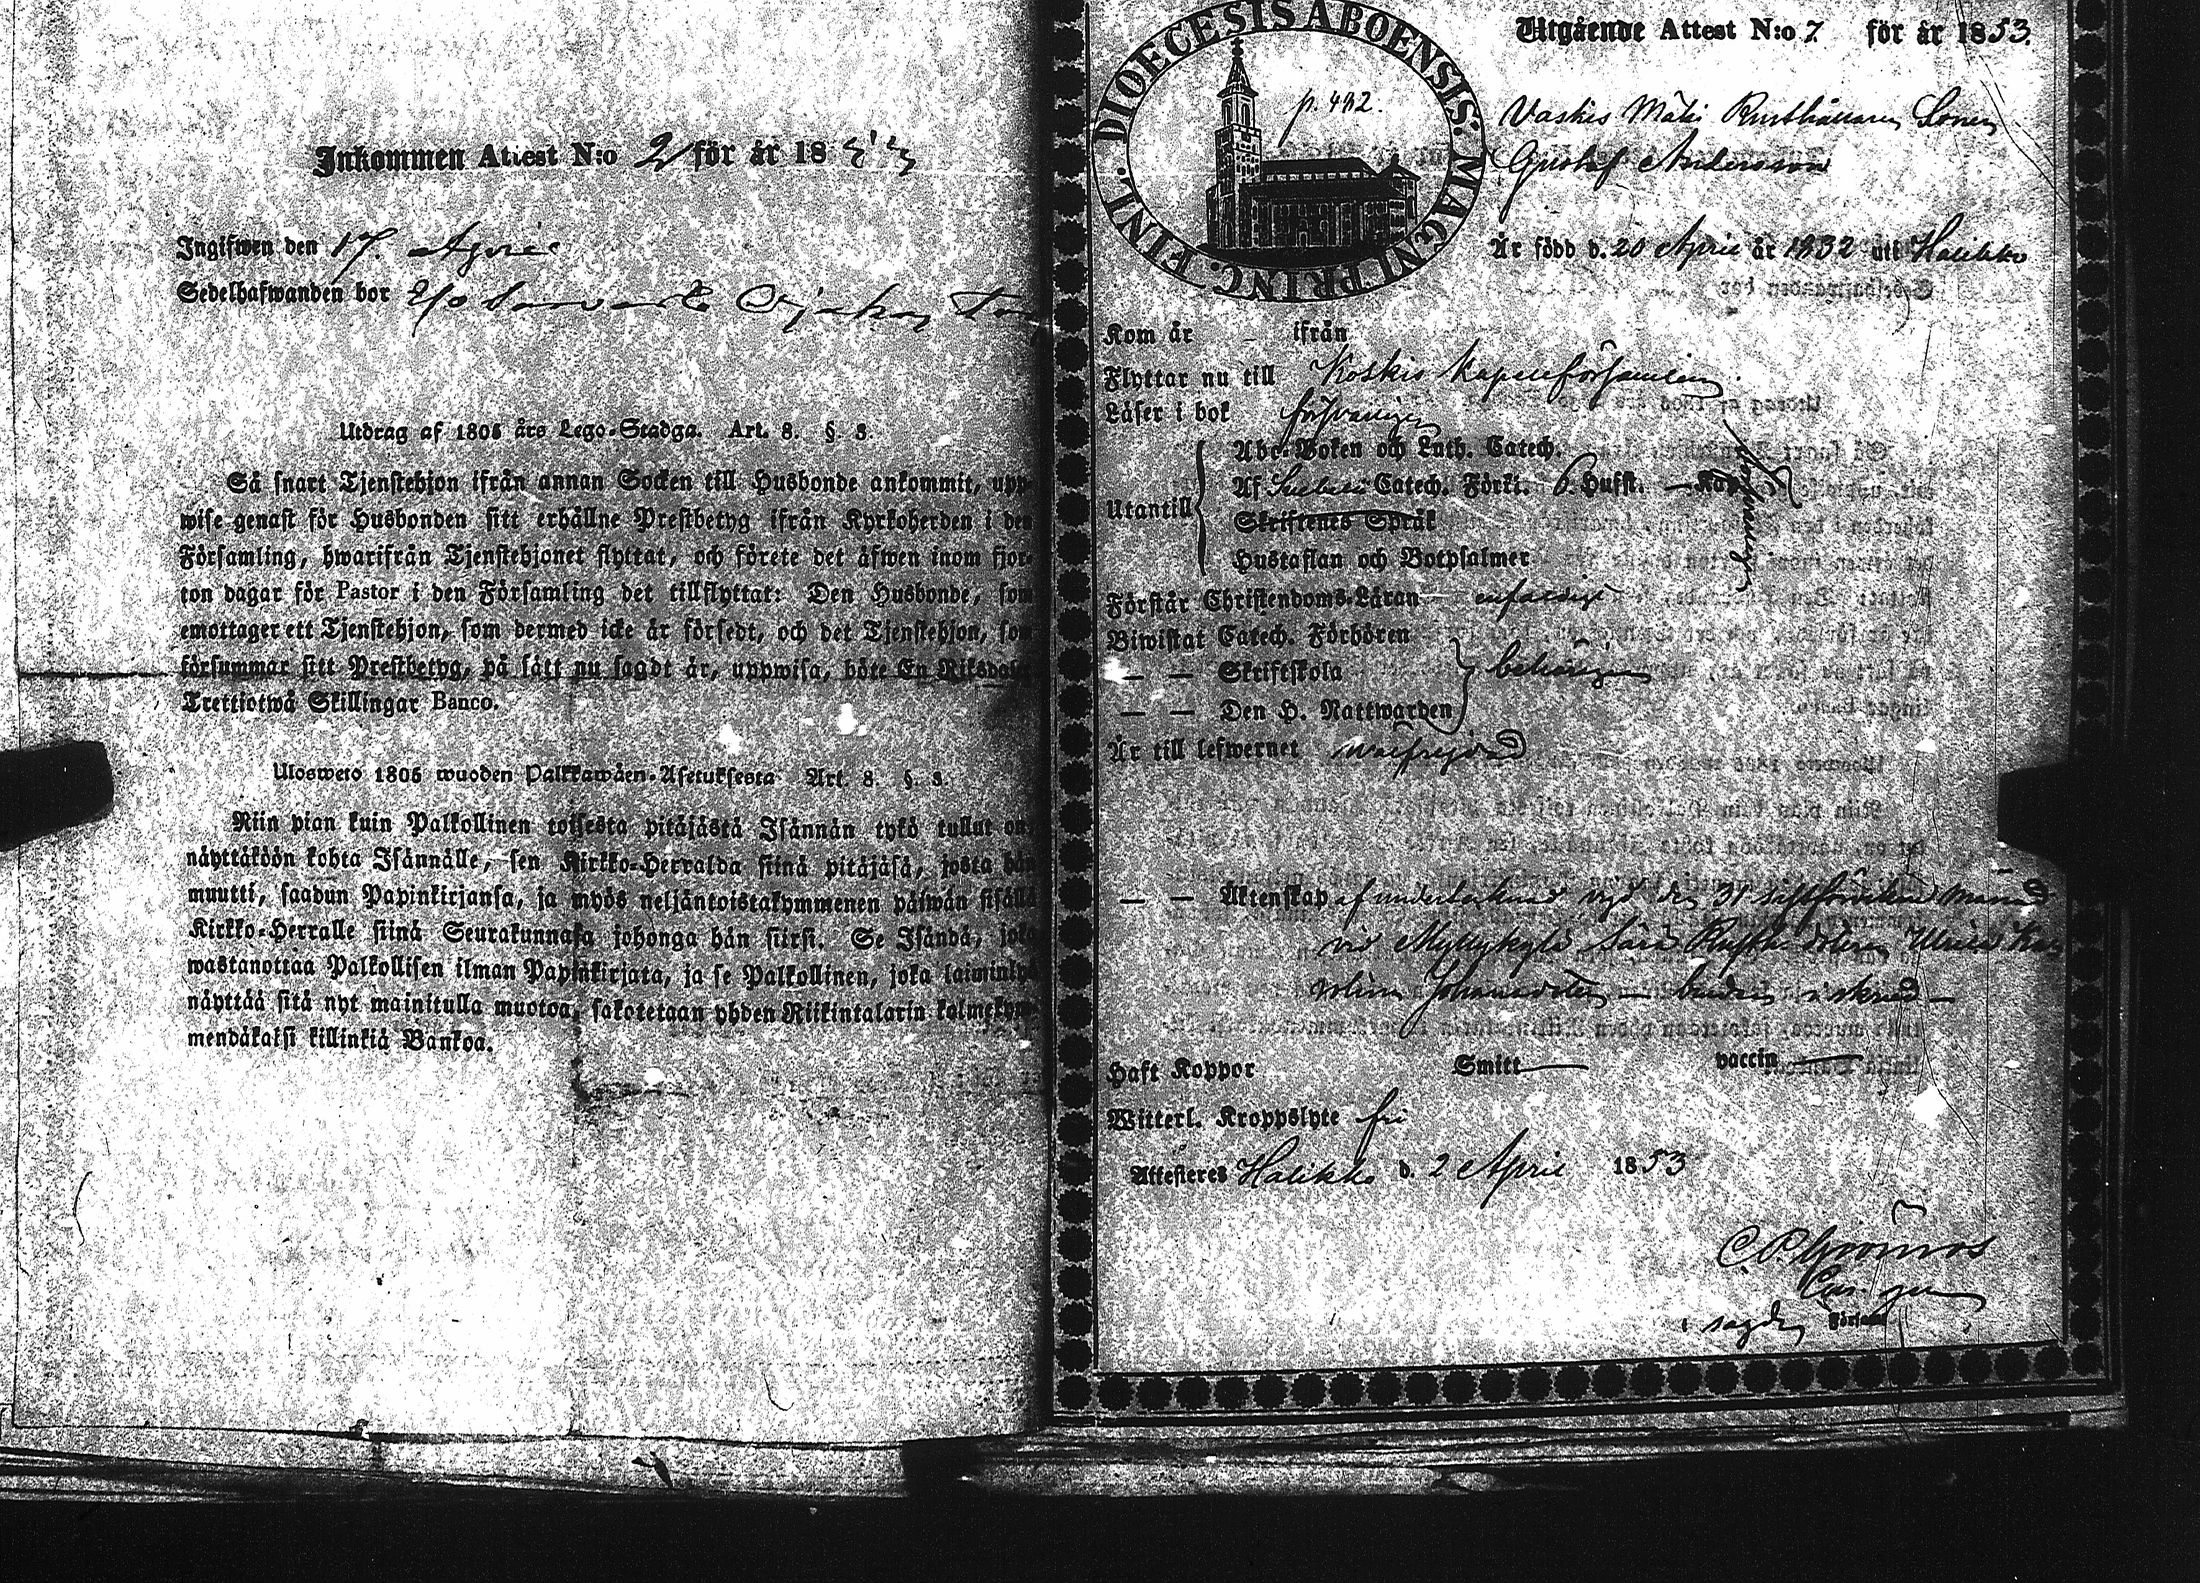 Inkommen Attest N:o 2 för år 18
Ingifwen den 17. April
Sedelhafwanden bor
Utdrag af 1805 års Lego-Stadga. Art. 8. §. 3.
Så snart Tjenstehjon ifrån annan Socken till Husbonde ankommit, upp-
wise genast för Husbonden sitt erhållne Prestbetyg ifrån Kyrkoherden i den
Församling, hwarifrån Tjenstehjonet flyttat, och förete det äfwen inom fjor-
ton dagar för Pastor i den Församling det tillflyttat: Den Husbonde, som
emottager ett Tjenstehjon, som dermed icke är försedt, och det Tjenstehjon, som
försummar sitt Prestbetyg, på sätt nu sagdt är, uppwisa, böte En Riksdaler
Trettiotwå Skillingar Banco.
Ulosweto 1805 wuoden Palkkawäen-Asetuksesta Art. 8. §. 3.
Niin pian kuin Palkollinen toisesta pitäjästä Isännän tykö tullut on,
näyttäköön kohta Isännälle, sen Kirkko-Herralda siinä pitäjäsä, josta hän
muutti, saadun Papinkirjansa, ja myös neljäntoistakymmenen päiwän sisällä
Kirkko-Herralle siinä Seurakunnasa johonga hän siirsi. Se Isändä, joka
wastanottaa Palkollisen ilman Papinkirjata, ja se Palkollinen, joka laiminlyö
näyttää sitä nyt mainitulla muotoa, sakotetaan yhden Riikintalarin kolmekym-
mendäkaksi killinkiä Bankoa.
DIOECESIS ABOENSIS. MAGNI PRINC. FINL.
p. 432.
Utgående Attest N:o 7. för år 1853.
Vaskis Mäki Rusthållaren Sonen
Gustaf Andersson
Är född d. 20 April år 1832 uti Halikko
Kom år - ifrån
Flyttar nu till Koskis Kapellförsamling.
Läser i bok försvarligen
Utantill
Abc-Boken och Luth. Catech.
Af Svebelii Catech. Förkl. 6. Hufst. — Kap.
Skriftenes Språk
Hustaflan och Botpsalmer
Förstår Christendoms-Läran enfaldigt
Biwistat Catech. Förhören
— — Skriftskola behörigen
— — Den H. Nattwarden
Är till lefwernet wälfrejdad
— — Äktenskap af undertecknad vigd den 31 sistförvikne månad
vid Myllykylä Rusth. dotern Ulrica Ka-
rolina Johansdoter —
Haft Koppor Smitt— vaccin—
Witterl. Kroppslyte fri
Attesteres Halikko d. 2 April 1853
C. P. Grönroos
i sagde Församl.